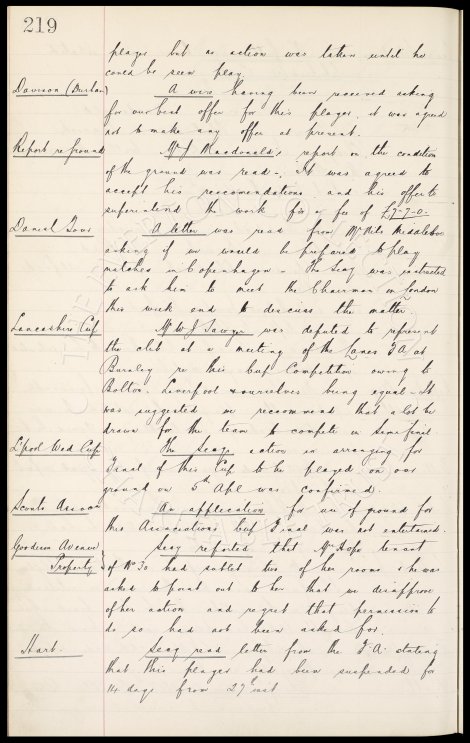 219
player but no action was taken until he
could be seen play.
Davison (Durham) A wire having been received asking
for our best offer for this player, it was agreed
not to make any offer at present.
Report re ground Mr J Macdonald's report on the condition
of the ground was read -. It was agreed to
accept his reccomendations and his offer to
superintend the work for a fee of £7-7-0-
Daniel Tour A letter was read from Mr Nils Middelboe
asking if we would be prepared to play
matches in Copenhagen - The Secy was instructed
to ask him to meet the Chairman in London
this week end to discuss the matter.
Lancashire Cup Mr W J Sawyer was deputed to represent
the club at a meeting of the Lancs F.A. at
Burnley re this Cup Competition owing to
Bolton, Liverpool & ourselves being equal - It
was suggested we recommend that a lot be
drawn for the team to compete in Semi final.
L'pool Wed Cup The Secys action in arranging for
Final of this Cup to be played on our
ground on 5th Apl was confirmed.
Scouts Assocn An application for use of ground for
this Associations Cup Final was not entertained.
Goodison Avenue Secy reported that Mrs tenant
Property of No 30 had sublet two of her rooms & he was
asked to point out to her that we disapprove
of her action and regret that permission to
do so had not been asked for.
Hart. Secy read letter from the F.A. stating
that this player had been suspended for
14 days from 27th inst